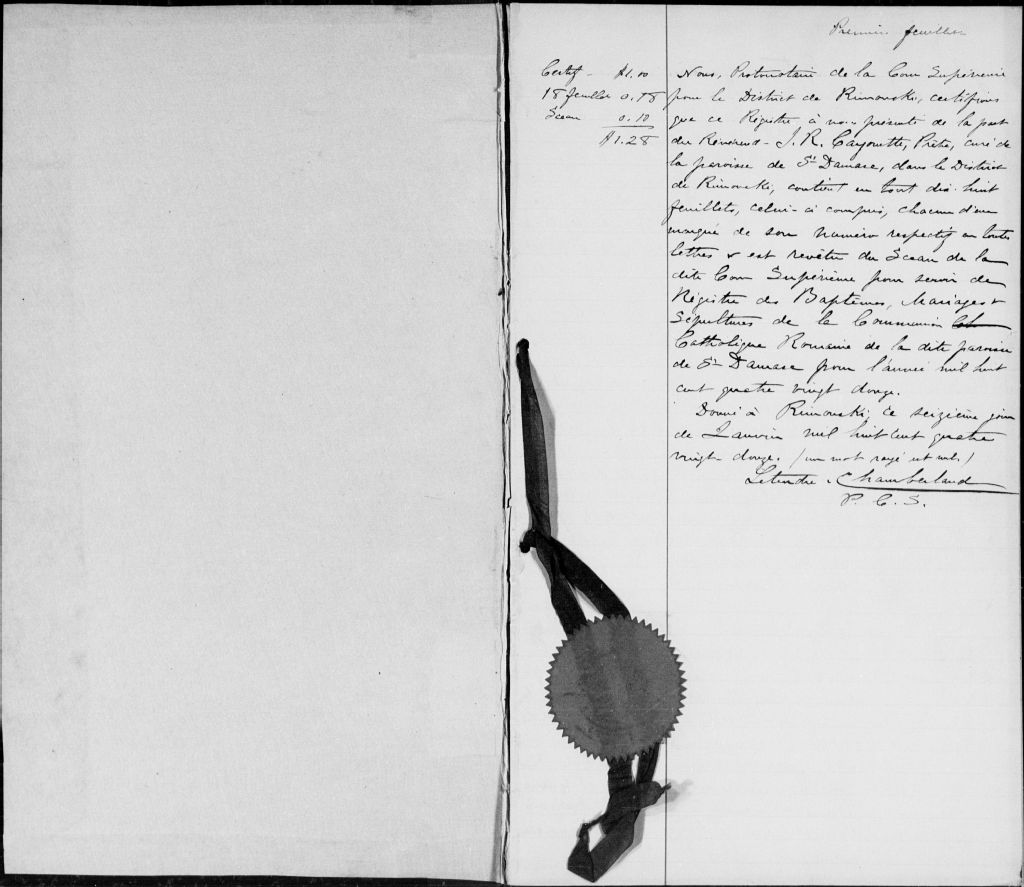 Premier feuillet
Certif - $1.00
18 feuillets 0.18
Sceau 0.10
$1.28
Nous, Protonotaire de la Cour Supérieure
pour le District de Rimouski, certifions
que ce Régistre, à nous présenté de la part
du Révérend J. R. Cayouette, Ptre, curé de
la paroisse de St Damase, dans le District
de Rimouski, contient en tout dix-huit
feuillets, celui-ci compris, chacun d'eux
marqué de son numéro respectif en toutes
lettres & est revêtu du Sceau de la
dite Cour Supérieure pour servir de
Régistre des Baptêmes, Mariages &
Sépultures de la Communion
Catholique Romaine de la dite paroisse
de St Damase pour l'année mil huit
cent quatre vingt douze.
Donné à Rimouski, ce seizième jour
de Janvier mil huit cent quatre
vingt-douze. (un mot rayé est nul.)
Letendre & Chamberland
P. C. S.